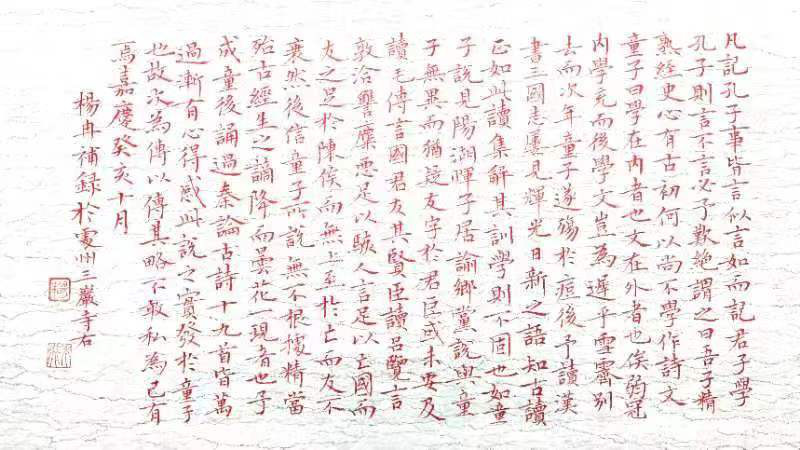 凡記孔子事皆言似言如而記君子學
孔子則言不言必予歎絶謂之曰吾子精
熟經史心有古初何以尚不學作詩文
童子曰學在內者也文在外者也俟弱冠
內學充而後學文豈為遲乎雪窗別
去而次年童子遂殤於痘後予讀漢
書三國志屢見輝光日新之語知古讀
正如此讀集解其訓學則不固也如童
子說見陽湖惲子居論鄉黨說與童
子無異而猶疑友字於君臣或未安及
讀毛傳言國君友其賢臣讀呂覽言
敦洽讐麋惡足以駭人言足以亡國而
友之足於陳侯而無上至於亡而友不
衰然後信童子所說無不根據精當
殆古經生之謫降而曇花一現者也予
成童後誦過秦論古詩十九首皆萬
過漸有心得感此說之實發於童子
也故次為傳以傳其略不敢私為己有
焉嘉慶癸亥十月
楊冉補録於處州三巖寺右